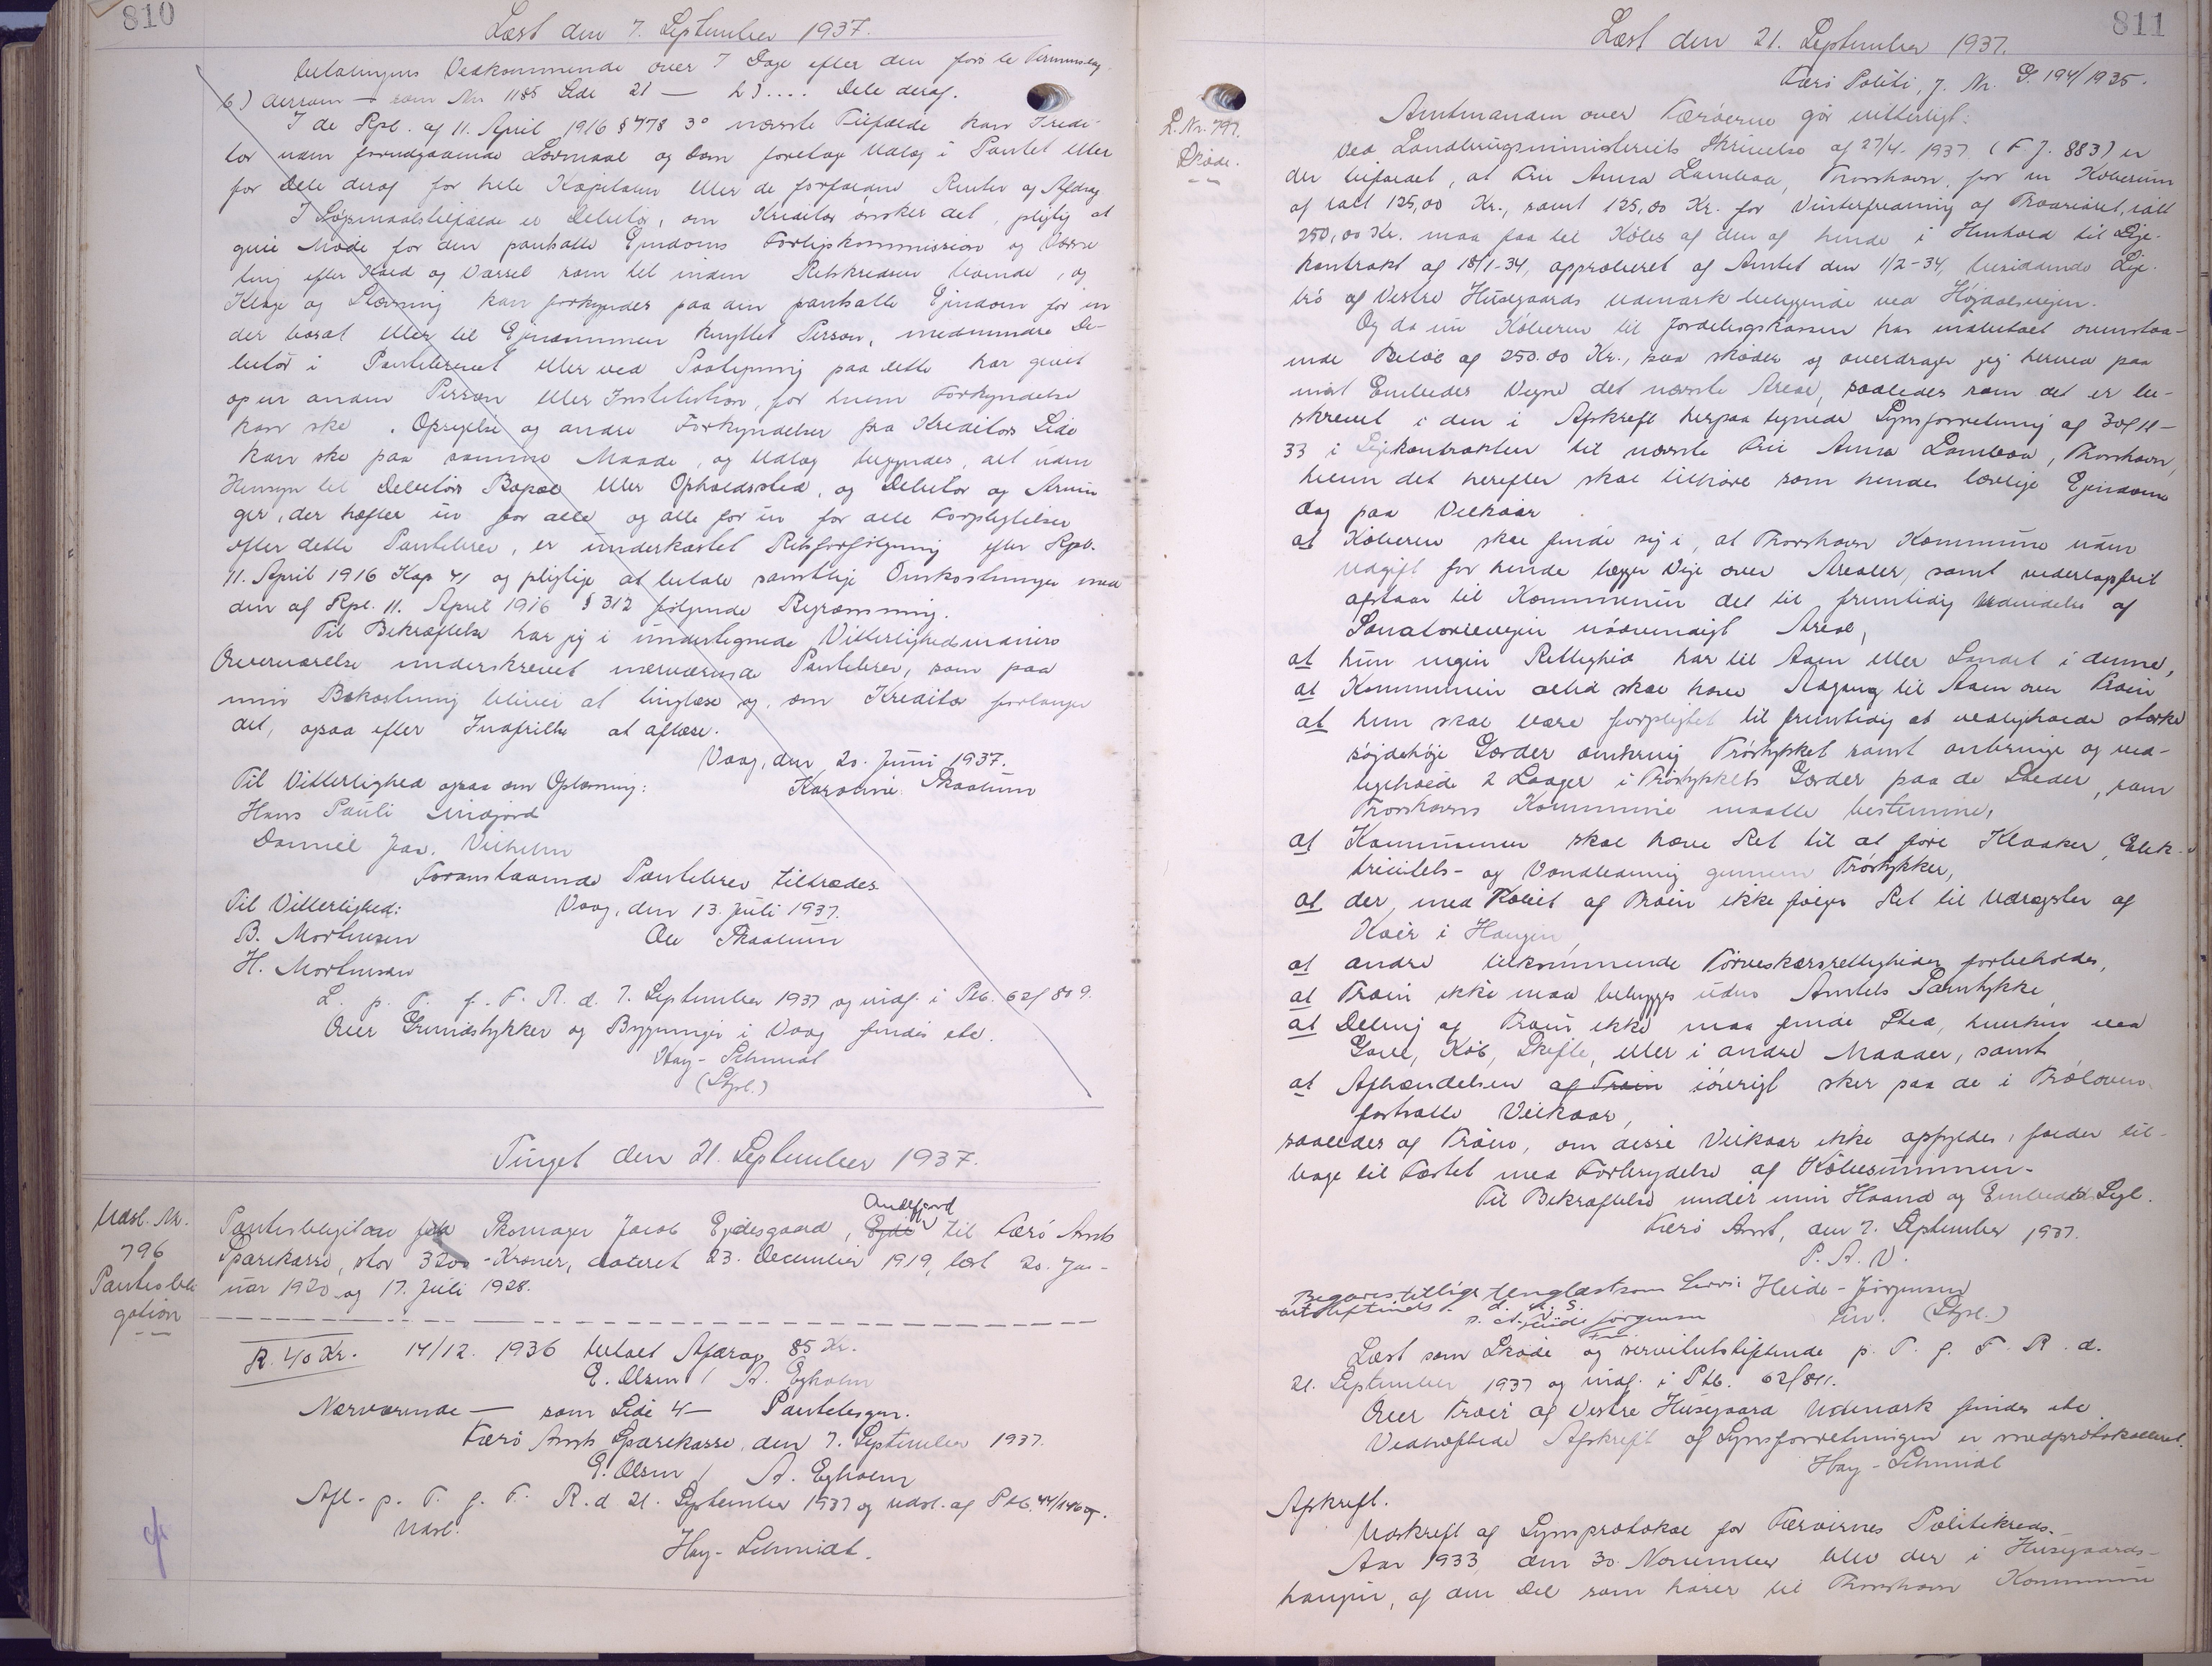 810
Læst den 7. September 1937.
betalingens Vedkommende over 7 Dage efter den fors te Terminsdag.
6) dersom — som Nr 1185 Side 21 — 23 .... Dele deraf.
I de Rpl. af 11. April 1916 § 478 3° nævnte Tilfælde kan Kredi-
tor uden forudgaaende Lovmaal og Dom foretage Udlæg i Pantet eller
for Dele deraf for hele Kapitalen eller de forfaldne Renter og Afdrag
I Søgsmaalstilfælde er Debitor, om Kreditor ønsker det, pligtig at
give Møde for den pantsatte Ejendoms Forligskommission og Værne
ting efter Kald og Varsel som til inden Retskredsen boende, og
Klage og Stævning kan forkyndes paa den pantsatte Ejendom for en
der bosat eller til Ejendommen knyttet Person, medmindre De-
bitor i Pantebrevet eller ved Paategning paa dette har givet
op en anden Person eller Institution, for hvem Forkyndelse
kan ske. Opsigelse og andre Forkyndelser fra Kreditors Side
kan ske paa samme Maade, og Udlæg begyndes, alt uden
Hensyn til Debitors Bopæl eller Opholdssted, og Debitor og Arvin
ger, der hæfter en for alle og alle for en for alle Forpligtelser
efter dette Pantebrev, er underkastet Retsforfølgning efter Rpl.
11. April 1916 Kap 41 og pligtige at betale samtlige Omkostninger med
den af Rpl. 11. April 1916 § 312 følgende Begrænsning.
Til Bekræftelse har jeg i undertegnede Vitterlighedsvidners
Overværelse underskrevet nærværende Pantebrev, som paa
min Bekostning bliver at tinglæse og, om Kreditor forlanger
det, ogsaa efter Indfrielse at aflæse.
Vaag, den 20. Juni 1937.
Til Vitterlighed ogsaa om Oplæsning: Karoline Skaalum
Hans Pauli
Daniel Jac. Vilhelm
Foranstaaende Pantebrev tiltrædes
Til Vitterlighed: Vaag, den 13. Juli 1937.
B. Mortensen Ole Skaalum
H. Mortensen
L. p. T. f. F. R. d. 7. September 1937 og indf. i Ptb. 62/809.
Over Grundstykker og Bygninger i Vaag findes etc.
Hay-Schmidt
(Stpl.)
Tinget den 21. September 1937.
Udsl. Nr.
796
Panteobli
gation
Andefjord
Panteobligation fra Skomager Jacob Ejdesgaard, Ejde til Færø Amts
Sparekasse, stor 3200 - Kroner, dateret 23. December 1919, læst 20. Jan-
uar 1920 og 17. Juli 1928.
R. 40 Kr. 14/12. 1936 betalt Afdrag 85 Kr.
E. Olsen / A. Egholm
Nærværende — som Side 4 — Pantebogen.
Færø Amts Sparekasse, den 7. September 1937.
E. Olsen / A. Egholm
Afl. p. T. f. F. R. d. 21. September 1937 og udsl. af Ptb. 44/146
Udsl.
Hay-Schmidt.
811
Læst den 21. September 1937.
Færø Politi, J. Nr. G. 194/1935.
L. Nr. 797.
Skøde.
Amtmanden over Færøerne gør vitterligt:
Ved Landbrugsministeriets Skrivelse af 27/4. 1937 (F. J. 883) er
der tilladt, at Fru Anna Lamhaa, Thorshavn, for en Købesum
af ialt 125,00 Kr., samt 125,00 Kr. for Vinterfredning af Traarealet, ialt
250,00 Kr. maa faa til Købes af den af hende i Henhold til Leje-
kontrakt af 18/1-34, approberet af Amtet den 1/2-34, besiddende Leje-
trø af Vestre Husegaards Udmark beliggende ved Højdalsvejen.
Og da nu Køberen til Jordelagskassen har indbetalt ovenstaa-
ende Beløb af 250.00 Kr., saa skøder og overdrager jeg herved paa
mit Embedes Vegne det nævnte Areal, saaledes som det er be-
skrevet i den i Afskrift herpaa tegnede Synsforretning af 30/11-
33 i Lejekontrakten til nævnte Fru Anna Lamhaa, Thorshavn,
hvem det herefter skal tilhøre som hendes lovlige Ejendom
dog paa Vilkaar
at Køberen skal finde sig i, at Thorshavn Kommune uden
Udgift for hende lægger Veje over Arealer, samt vederlagsfrit
afstaar til Kommunen det til fremtidig Udvidelse af
Sanatorievejen nødvendigt Areal,
at hun ingen Rettighed har til Aaen eller Landet i denne,
at Kommunen altid skal have Adgang til Aaen over Trøen
at hun skal være forpligtet til fremtidig at vedligeholde stærke
søjdehøje Gærder omkring Trøstykket samt anbringe og ved-
ligeholde 2 Laager i Trøstykkets Gærder paa de Steder, som
Thorshavns Kommune maatte bestemme,
at Kommunen skal have Ret til at føre Kloaker, Elek-
tricitets- og Vandledning gennem Trøstykker,
at der med Købet af Trøen ikke følger Ret til Udrøgster og
Køer i Haugen,
at andre tilkommende Tørveskærsrettigheder forbeholdes,
at Trøen ikke maa bebygges uden Amtets Samtykke
at Deling af Trøen ikke maa finde Sted, hverken ved
Gave, Køb, Skifte, eller i andre Maader, samt
at Afhændelsen af Trøen iøvrigt sker paa de i Trøloven
fastsatte Vilkaar,
saaledes at Trøen, om disse Vilkaar ikke opfyldes, falder til-
bage til Fæstet med Fortrydelse af Købesummen.
Til Bekræftelse under min Haand og Embedets Segl.
Færø Amt, den 7. September 1937.
P. A. V.
Begæres tillige tinglæst som Servi- Heide-Jørgensen
tutstiftende. d. A. S. Fm. (Stpl.)
Heide Jørgensen
Fm.
Læst som Skøde og servitutstiftende p. T. f. F. R. d.
21. September 1937 og indf. i Ptb. 62/811.
Over Trøer af Vestre Husegaard Udmark findes etc
Vedhæftede Afskrift af Synsforretningen er medprotokolleret.
Hay-Schmidt
Afskrift.
Udskrift af Synsprotokol for Færøernes Politikreds.
Aar 1933 den 30 November blev der i Husegaards-
haugen, af den Del som hører til Thorshavn Kommune